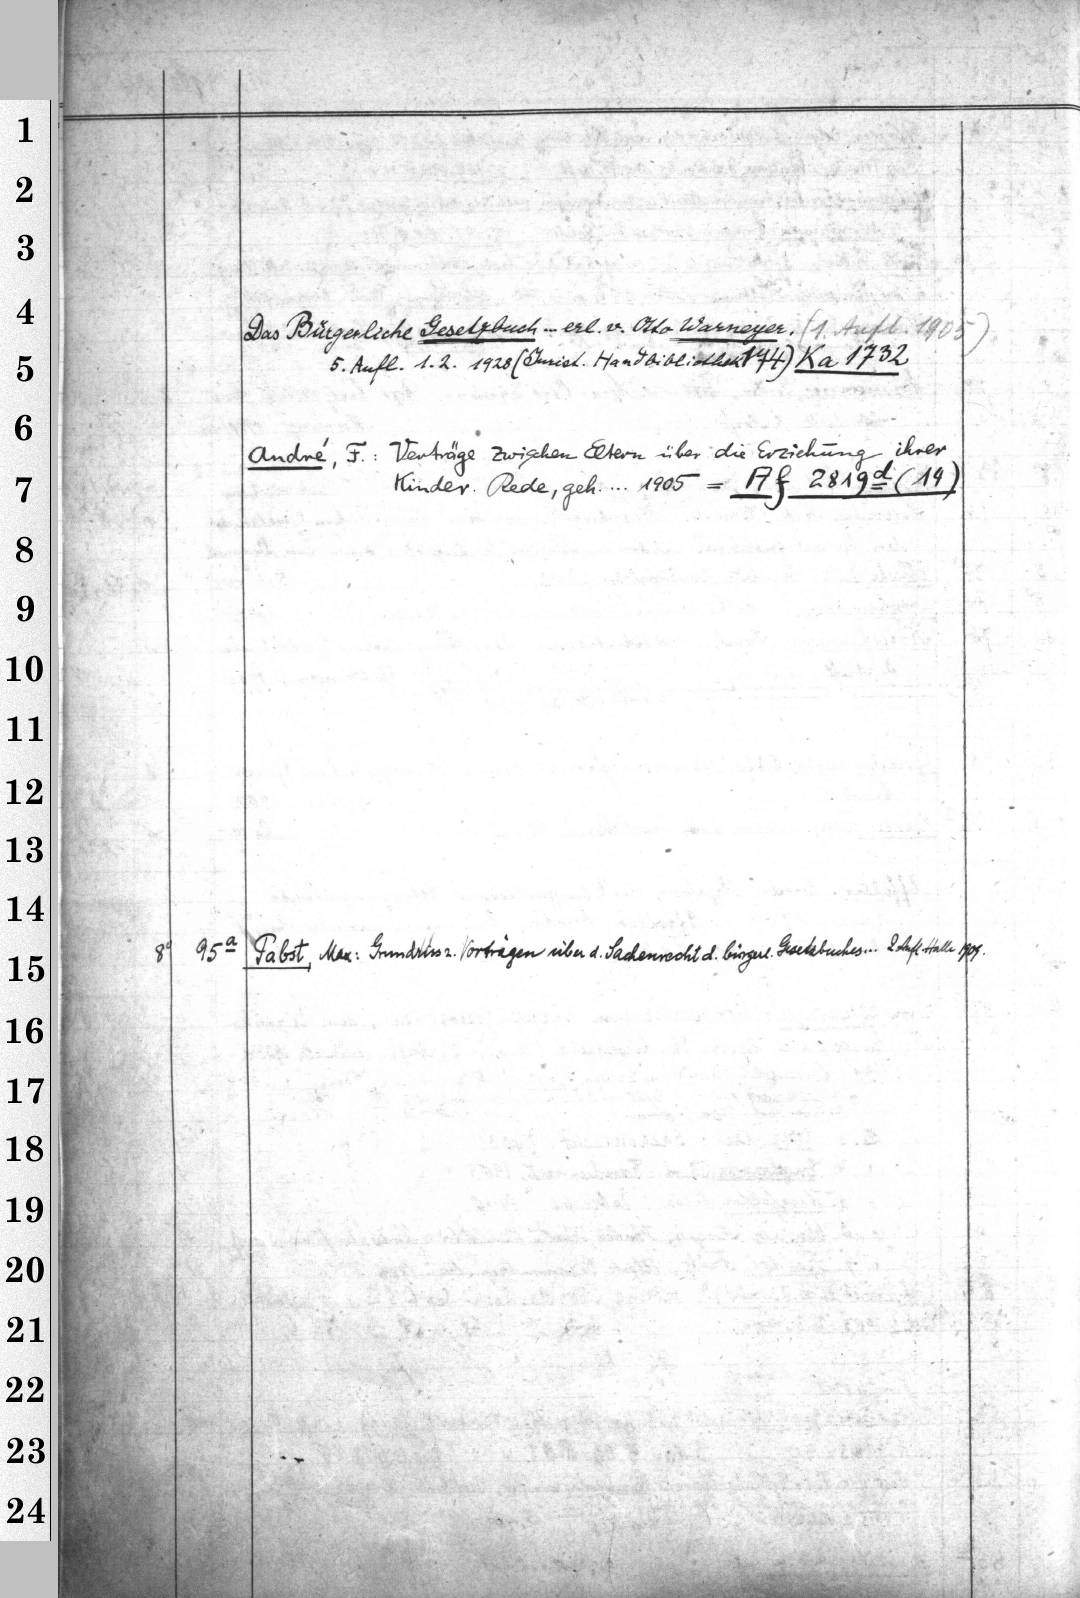 1
2
3
4
5
6
7
8
9
10
11
12
13
14
15
16
17
18
19
20
21
22
23
24
Das Bürgerliche Gesetzbuch ... erl. v. Otto Warneyer. (1. Aufl. 1905)
5. Aufl. 1.2. 1928 (Jurist. Handbibliothek 174) Ka 1732
André, F.: Verträge zwischen Eltern über die Erziehung ihrer
Kinder. Rede, geh. ... 1905 = Af 2819d (14)
8° 95a Pabst, Max: Grundriss z. Vorträgen über d. Sachenrecht d. bürgerl. Gesetzbuches... 2. Aufl. Halle